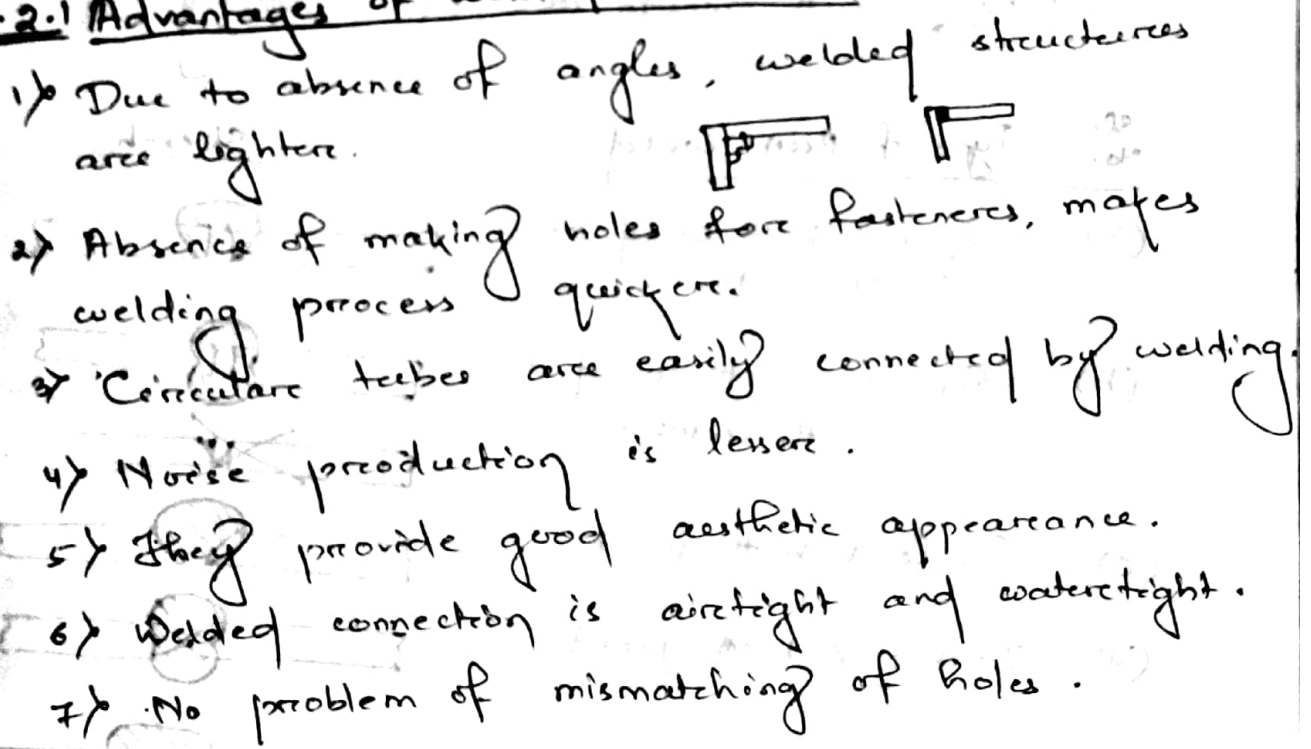 .2.1 Advantages of
1) Due to absence of angles, welded structures
are lighter.
2) Absence of making holes for fasteners, makes
welding process quicker.
3) Circular tubes are easily connected by welding.
4) Noise production is lesser.
5) They provide good aesthetic appearance.
6) Welded connection is airtight and watertight.
7) No problem of mismatching of holes.